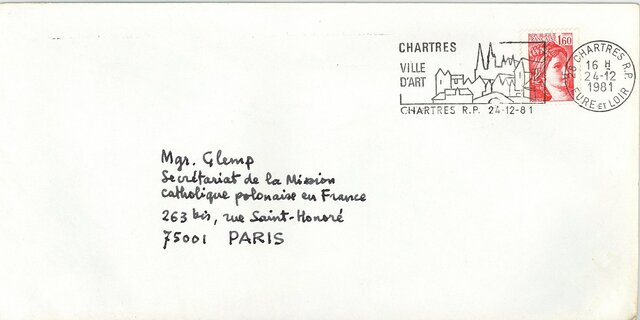 CHARTRES
VILLE
D'ART
CHARTRES R.P. 24-12-81
REPUBLIQUE
FRANÇAISE
1,60
28 CHARTRES R.P.
16 H
24-12
1981
EURE ET LOIR
Mgr. Glemp
Secrétariat de la Mission
catholique polonaise en France
263 bis, rue Saint-Honoré
75001 PARIS